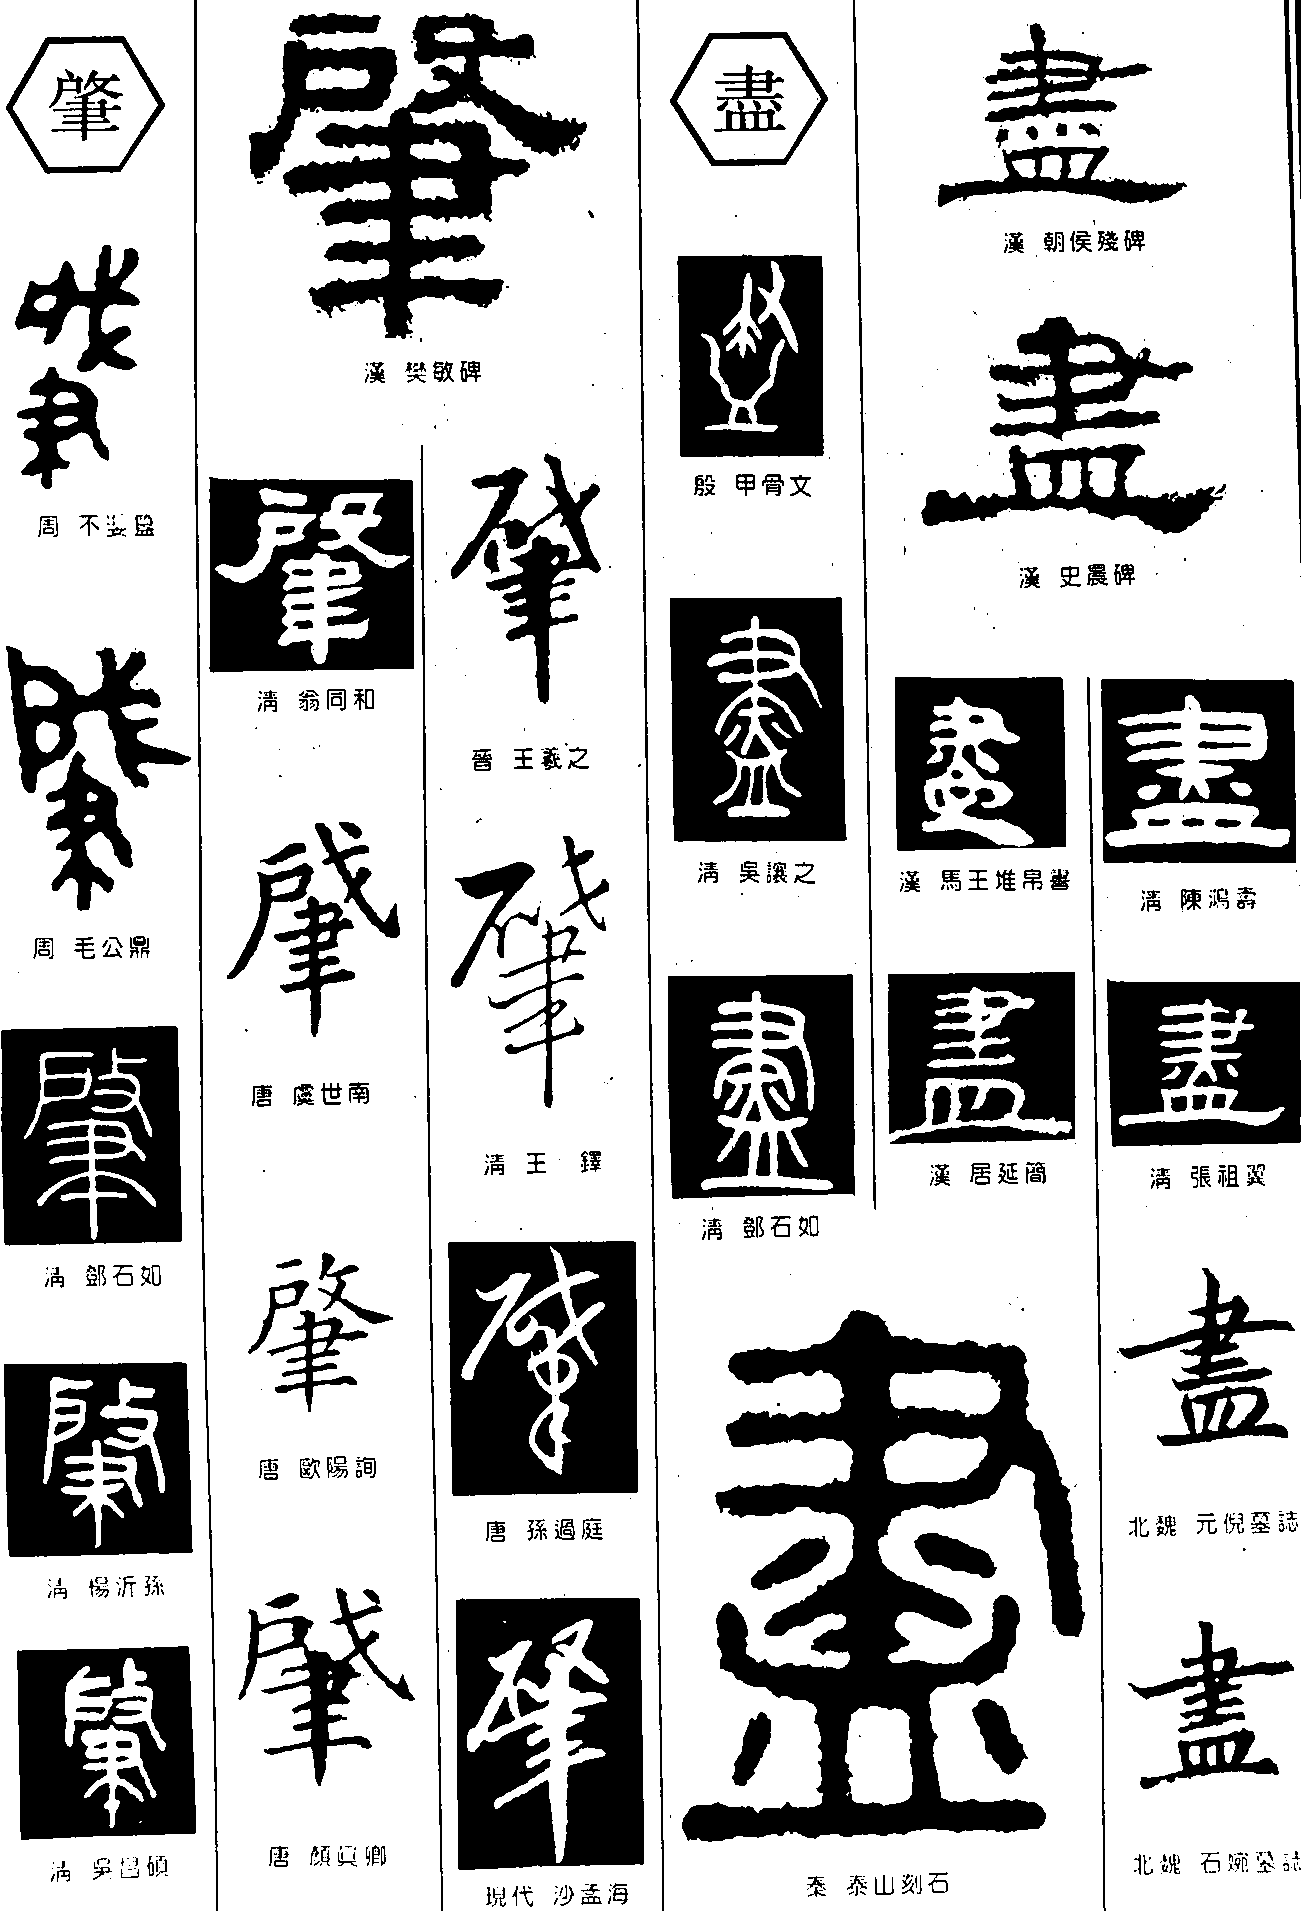 肇
肇
周 不𡢁簋
肇
周 毛公鼎
肇
清 鄧石如
肇
清 楊沂孫
肇
清 吳昌碩
肇
漢 樊敏碑
肇
清 翁同和
肇
唐 虞世南
肇
唐 歐陽詢
肇
唐 顏真卿
肇
晉 王羲之
肇
清 王 鐸
肇
唐 孫過庭
肇
現代 沙孟海
盡
盡
殷 甲骨文
盡
清 吳讓之
盡
清 鄧石如
盡
秦 泰山刻石
盡
漢 朝侯殘碑
盡
漢 史晨碑
盡
漢 馬王堆帛書
盡
漢 居延簡
盡
清 陳鴻壽
盡
清 張祖翼
盡
北魏 元倪墓誌
盡
北魏 石婉墓誌